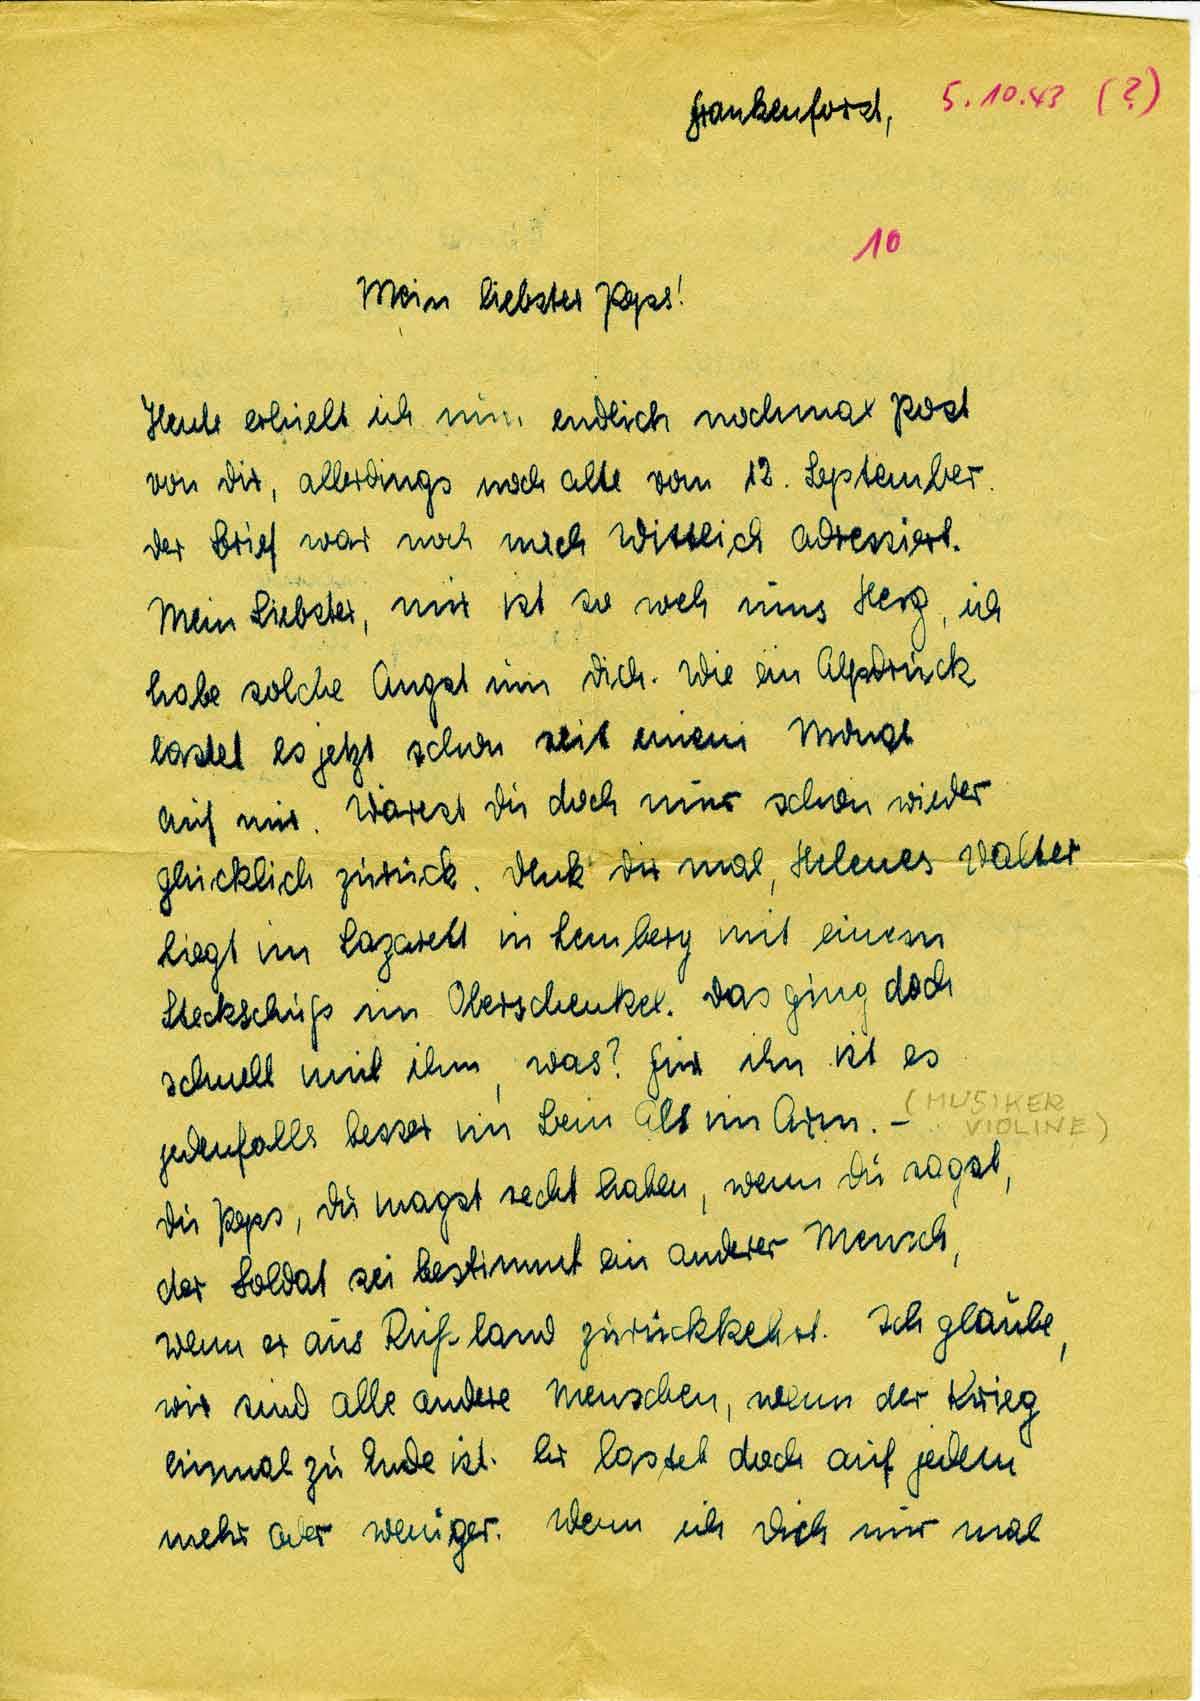 Frankenforst, 5.10.43 (?)
10
Mein liebster Peps!
Heute erhielt ich nun endlich nochmal Post
von dir, allerdings noch alte vom 12. September.
der Brief war noch nach Wittlich adressiert.
Mein Liebster, mir ist so weh ums Herz, ich
habe solche Angst um dich. Wie ein Alpdrück
lastet es jetzt schon seit einem Monat
auf mir. Wärest du doch nur schon wieder
glücklich zurück. Denk dir mal, Helenes Walter
liegt im Lazarett in Lemberg mit einem
Steckschuß im Oberschenkel. Das ging doch
schnell mit ihm, was? Für ihn ist es
jedenfalls besser im Bein als im Arm. – (MUSIKER
VIOLINE)
du Peps, du magst recht haben, wenn du sagst,
der Soldat sei bestimmt ein anderer Mensch,
wenn er aus Rußland zurückkehrt. Ich glaube,
wir sind alle andere Menschen, wenn der Krieg
einmal zu Ende ist. Er lastet doch auf jedem
mehr oder weniger. Wenn ich dich nur mal